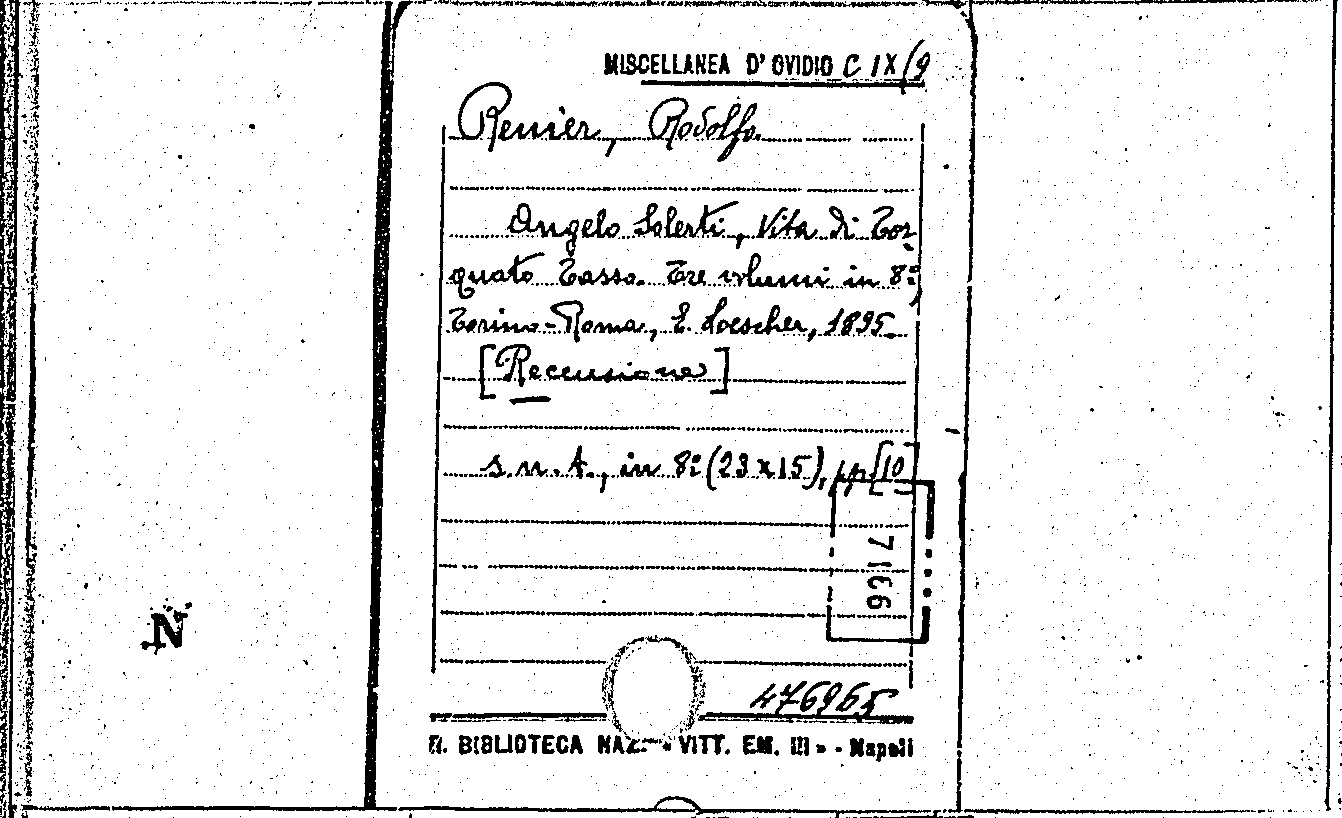 MISCELLANEA D' OVIDIO C IX/9
Renier, Rodolfo.
Angelo Solerti, Vita di Tor-
quato Tasso. Tre volumi in 8º,
Torino-Roma, E. Loescher, 1895.
[Recensione]
s. n. t., in 8º (23x15), pp. [10]
7166
476965
R. BIBLIOTECA NAZ. « VITT. EM. III » - Napoli
N